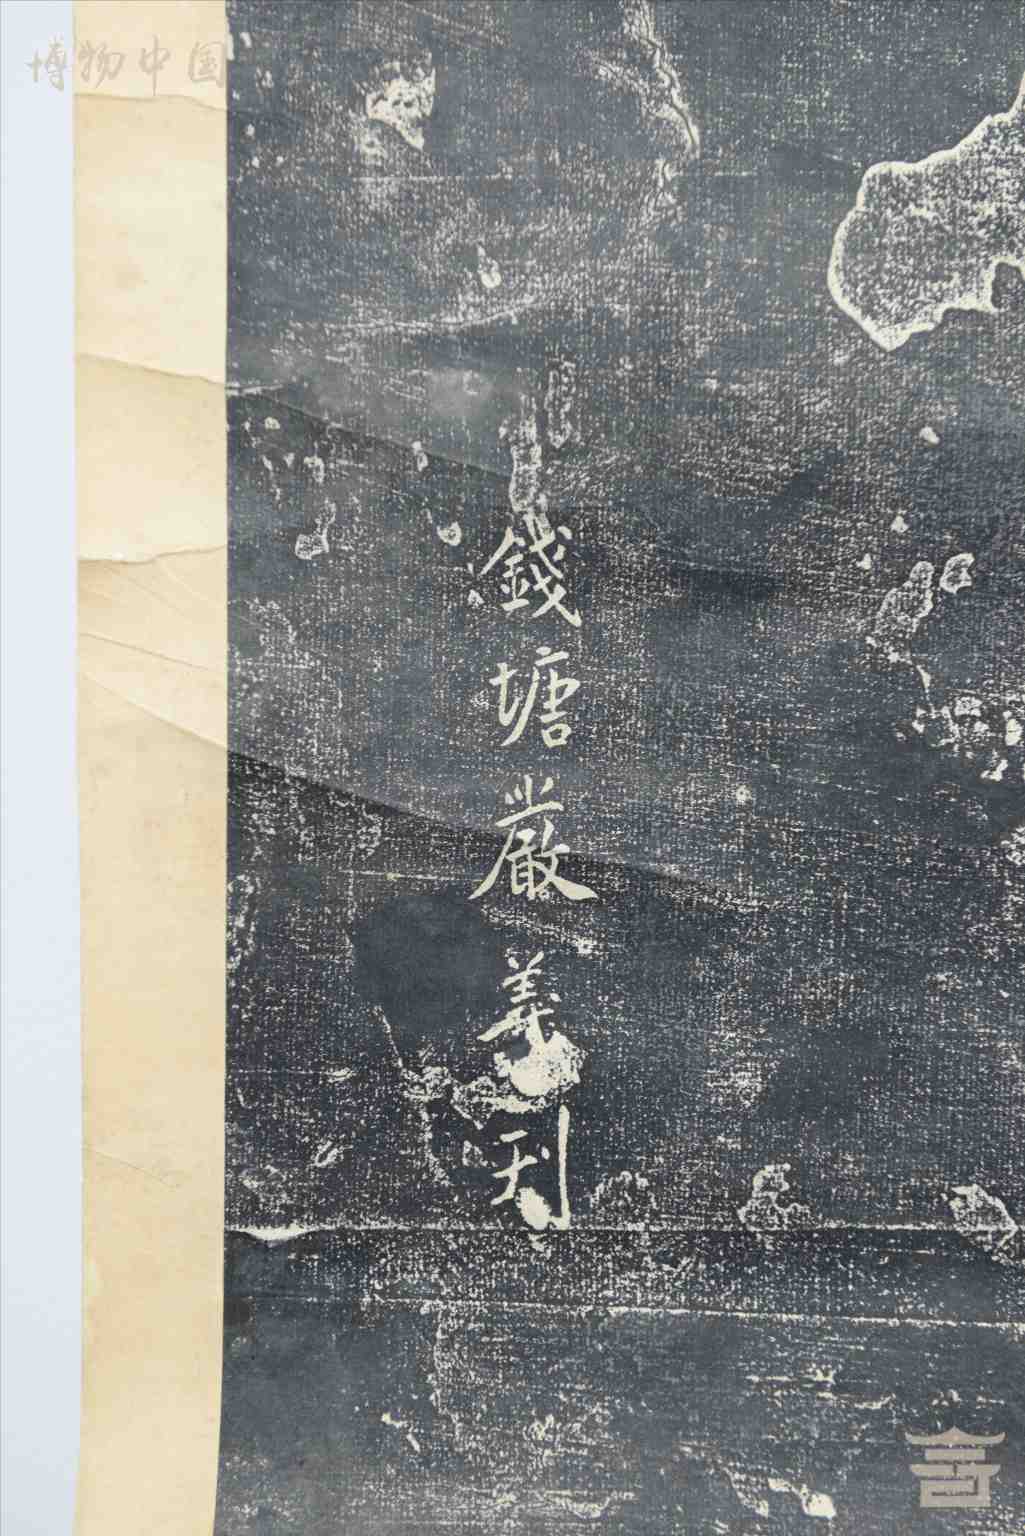 博物中国
錢塘嚴義刊